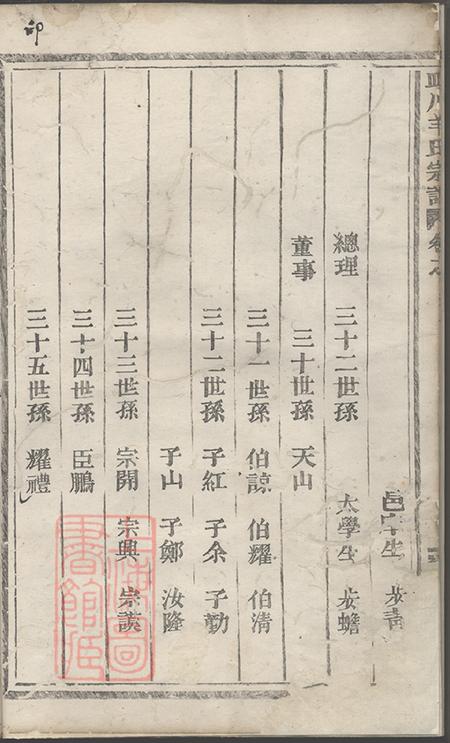 氏宗譜
邑庠生
總理 三十二世孫 太學生 步蟾
董事 三十世孫 天山
三十一世孫 伯諒 伯耀 伯清
三十二世孫 子紅 子余 子勤
子山 子鄭 汝隆
三十三世孫 宗開 宗興 宗漢
三十四世孫 臣鵬
三十五世孫 耀禮